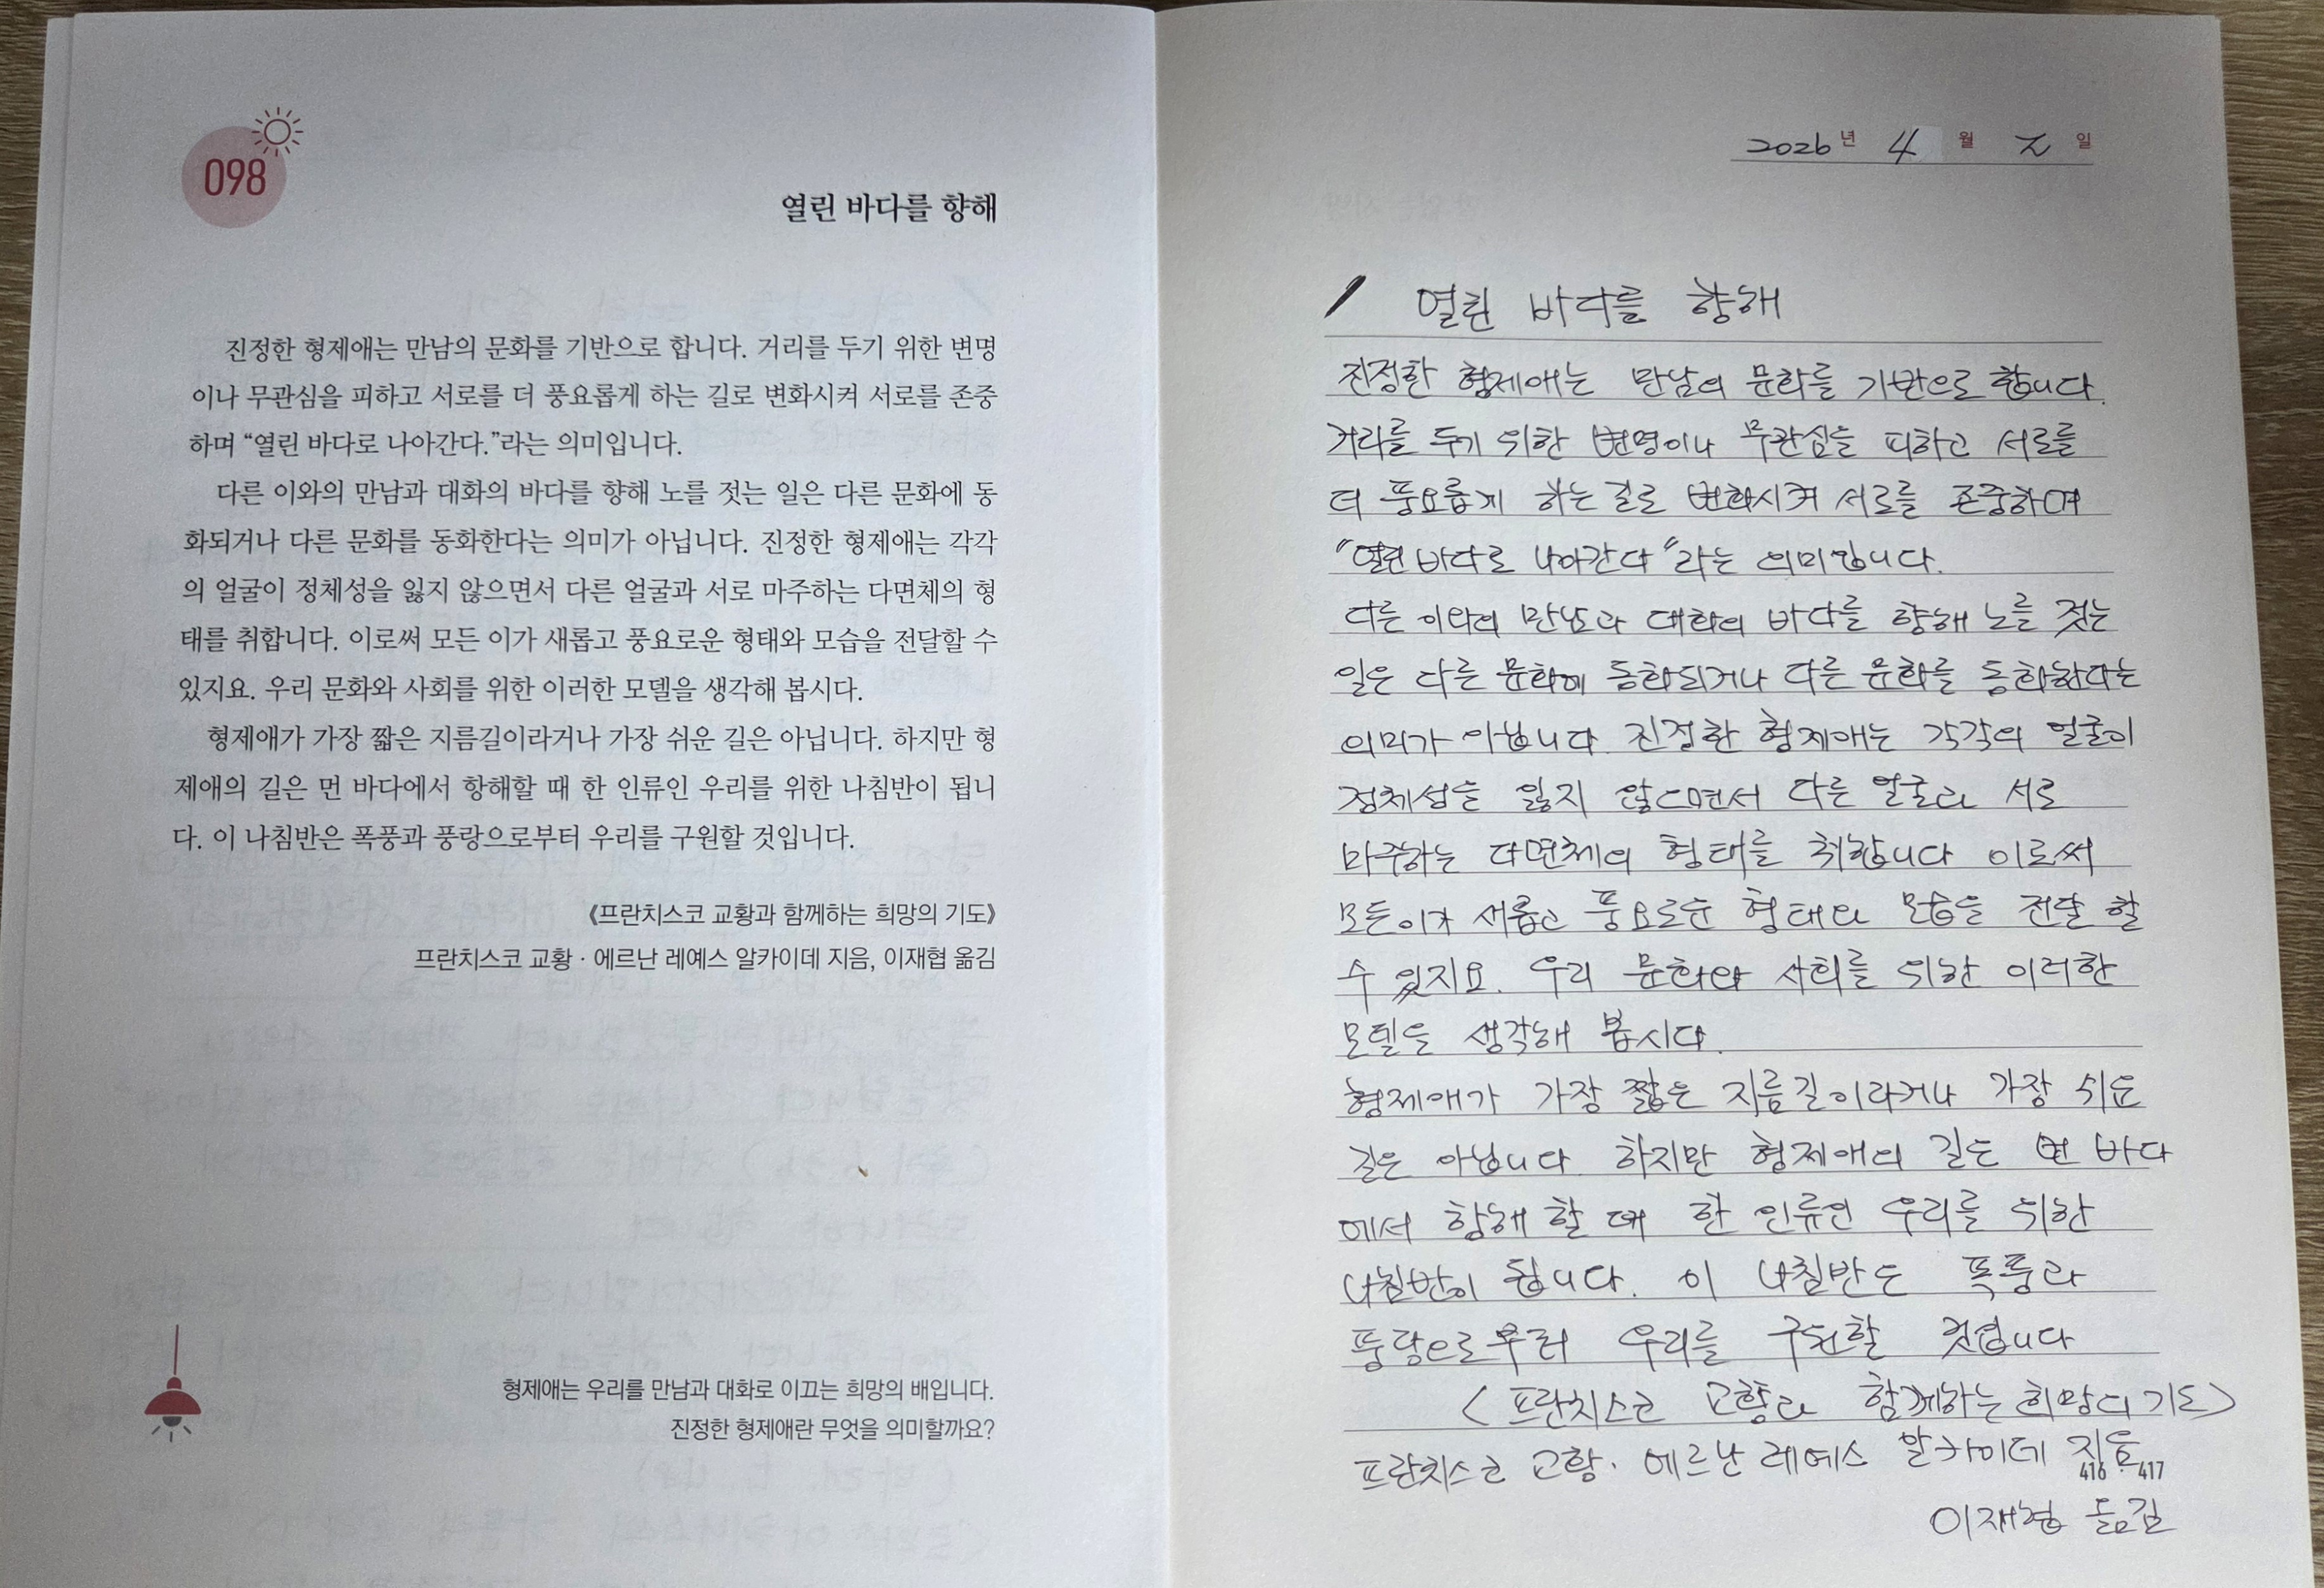 098
열린 바다를 향해
진정한 형제애는 만남의 문화를 기반으로 합니다. 거리를 두기 위한 변명
이나 무관심을 피하고 서로를 더 풍요롭게 하는 길로 변화시켜 서로를 존중
하며 “열린 바다로 나아간다.”라는 의미입니다.
다른 이와의 만남과 대화의 바다를 향해 노를 젓는 일은 다른 문화에 동
화되거나 다른 문화를 동화한다는 의미가 아닙니다. 진정한 형제애는 각각
의 얼굴이 정체성을 잃지 않으면서 다른 얼굴과 서로 마주하는 다면체의 형
태를 취합니다. 이로써 모든 이가 새롭고 풍요로운 형태와 모습을 전달할 수
있지요. 우리 문화와 사회를 위한 이러한 모델을 생각해 봅시다.
형제애가 가장 짧은 지름길이라거나 가장 쉬운 길은 아닙니다. 하지만 형
제애의 길은 먼 바다에서 항해할 때 한 인류인 우리를 위한 나침반이 됩니
다. 이 나침반은 폭풍과 풍랑으로부터 우리를 구원할 것입니다.
《프란치스코 교황과 함께하는 희망의 기도》
프란치스코 교황 · 에르난 레예스 알카이데 지음, 이재협 옮김
형제애는 우리를 만남과 대화로 이끄는 희망의 배입니다.
진정한 형제애란 무엇을 의미할까요?
2026년 4월 일
열린 바다를 향해
진정한 형제애는 만남의 문화를 기반으로 합니다.
거리를 두기 위한 변명이나 무관심을 피하고 서로를
더 풍요롭게 하는 길로 변화시켜 서로를 존중하며
“열린 바다로 나아간다“라는 의미입니다.
다른 이와의 만남과 대화의 바다를 향해 노를 젓는
일은 다른 문화에 동화되거나 다른 문화를 동화한다는
의미가 아닙니다. 진정한 형제애는 각각의 얼굴이
정체성을 잃지 않으면서 다른 얼굴과 서로
마주하는 다면체의 형태를 취합니다 이로써
모든이가 새롭고 풍요로운 형태와 모습을 전달 할
수 있지요. 우리 문화와 사회를 위한 이러한
모델을 생각해 봅시다.
형제애가 가장 짧은 지름길이라거나 가장 쉬운
길은 아닙니다. 하지만 형제애의 길은 먼 바다
에서 항해 할 때 한 인류인 우리를 위한
나침반이 됩니다. 이 나침반은 폭풍과
풍랑으로부터 우리를 구원할 것입니다
<프란치스코 교황과 함께하는 희망의 기도>
프란치스코 교황 · 에르난 레예스 알카이데 지음
416 · 417
이재협 옮김